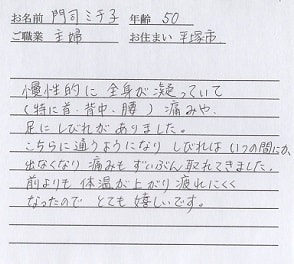 お名前 門司ミチ子 年齢 50
ご職業 主婦 お住まい 平塚市
慢性的に全身が凝っていて
(特に首・背中・腰)痛みや、
足にしびれがありました。
こちらに通うようになりしびれはいつの間にか、
出なくなり痛みもずいぶん取れてきました。
前よりも体温が上がり疲れにくく
なったのでとても嬉しいです。